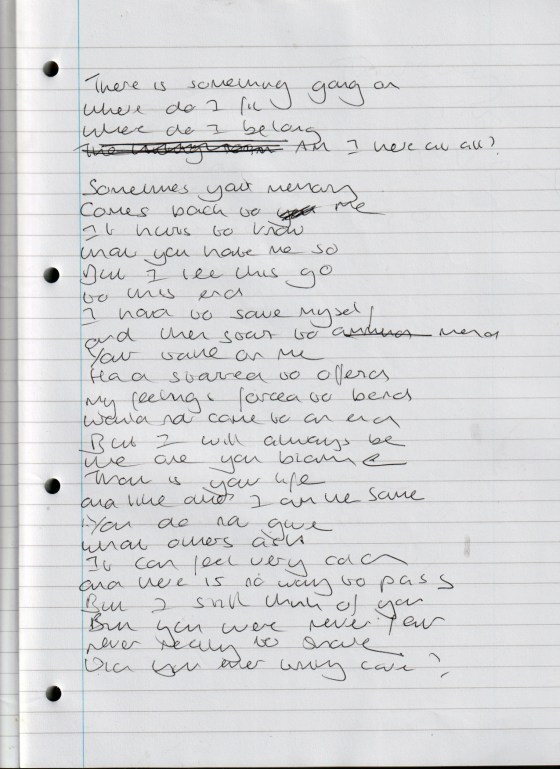 There is something going on
where do I fit
where do I belong
Am I here at all?
Sometimes your memory
Comes back to me
It hurts to know
that you hate me so
But I let this go
to this end
I had to save myself
and then start to mend
Your take on me
Had started to offend
My feelings forced to bend
Would not come to an end
But I will always be
the one you blame
That is your life
and I am the same
You do not give
what others ask
It can feel very cold
and there is no way to pass
But I still think of you
But you were never fair
never ready to share
Did you ever truly care?